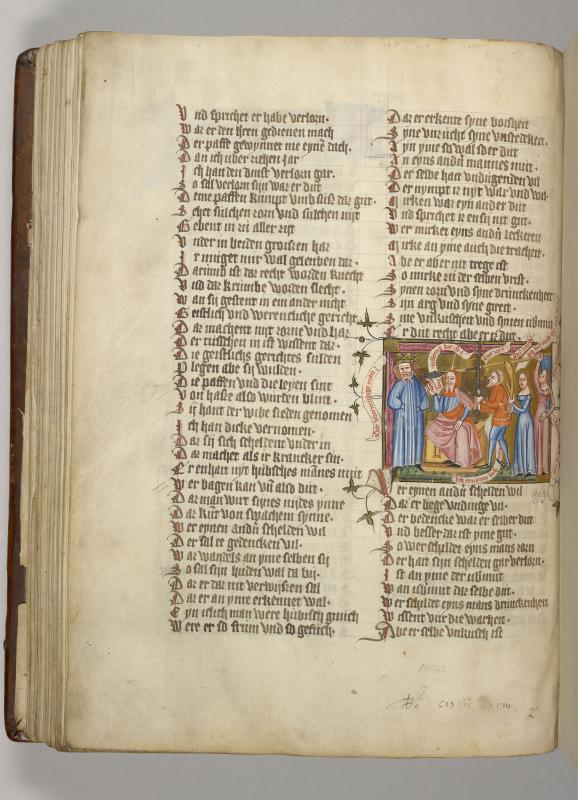 Und sprichet er habe verlorn.
War er den hern gedienen mach
Der paffe gewynnet nie eynē dach.
Dan ich uber ziehen jar
Ich han den dinst verlorn gar.
So sal verlorn sijn war er dut
Deme paffen kumpt
sehet sulchen zorn und sulchen nijt
Gebent in zü aller zijt
Under in beiden groissen haz
Ir muiget mir wal geleuben daz.
Darumb ist daz recht worden knecht
Und daz krumbe worden slecht.
Wan sij gestent in ein ander nicht
Geistlich und werentliche gericht
Daz machent nijt zorne und haz
Der tusschen in ist wissent daz.
Die geistlichs gerichtes sulden
plegen abe sij wulden.
Die paffen und die leyen sint
Von hasse also wurden blint.
Sij hant der wibe sieden genomen
Ich han dicke vernomen.
Daz sij sich scheldent under in
Daz machet als ir krancker sin.
Er enhait nyt hubsches mānes muit
Wer bagen kan un̄ also dut.
Daz man durt synes nijdes ynne
Daz kūt von swachem synne.
Wer eynen andn̄ schelden wil
Der sal er gedencken vil.
Waz wandels an yme selben sij
So sal sijn huden wal da bij.
Daz er daz nit verwijssen sal
Daz er an yme erkennet wal.
Eyn islich man were hubisch gnuich
Were er so frum und so gefuch.
Daz er erkente syne boisheit
Syne unzuicht syne unstedekeit.
In yme so wal so der dut
In eyns andn̄ mannes muit.
Der selbe hait undugenden vil
Der nympt ir nyt war und wil
Mirken waz eyn ander dut
Und sprichet ir ensij nit gut.
Wer mirket eyns andn̄ leckereit
Mirke an yme auch die tracheit.
Abe er aber nit trege ist
So mirke zü der selben vrist.
Synen zorn und syne drunckenheit
Sijn arg und syne gireit.
Sine unkuscheit und synen ubmuit
Er dut recht abe er iz dut.
Wer eynen andn̄ schelden wil
Daz er hege undugē vil.
Der bedencke waz er selber dut
Und besser daz ist yme gut.
So wer schildet eyns mans zorn
Der hait sijn schelden gar verlorn.
Ist an yme der ubmuit
Wan ubmuit daz selbe dut.
Wer schildet eyns mans drunckenheit
Wissent vur die warheit.
Abe er selbe unkusch ist